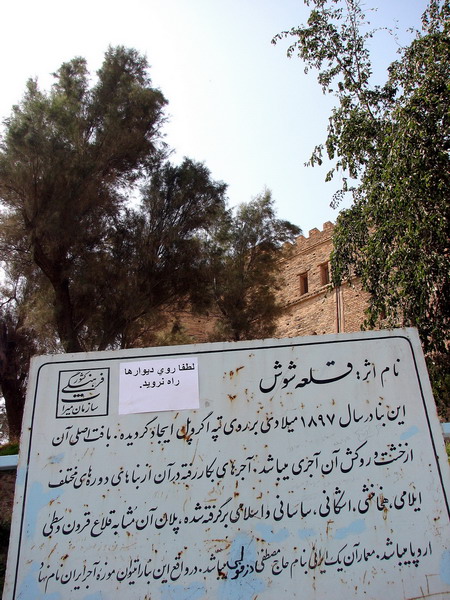 سازمان میراث فرهنگی کشور
لطفا روي ديوارها
راه نرويد.
نام اثر: قلعه شوش
این بنا در سال ۱۸۹۷ میلادی بر رده‌ی تپه اکروپل ایجاد گردیده. بافت اصلی آن
از خشت و روکش آن آجری میباشد. آجرهای بکار رفته در آن از بناهای دوره‌های مختلف
ایلامی، هخامنشی، اشکانی، ساسانی و اسلامی برگرفته شده، پلان آن مشابه قلاع قرون وسطی
اروپا میباشد. معمار آن یک ایرانی بنام حاج مصطفی دزفولی میباشد. در واقع این بنا را میتوان موزه آجر ایران نام نهاد